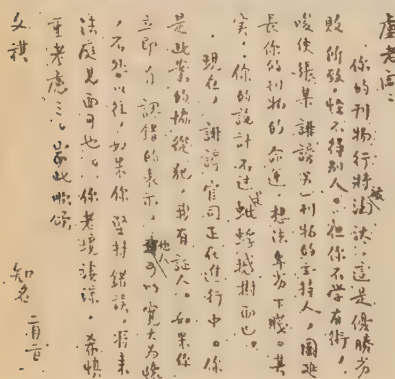 盧老闆：
你的刊物行將被淘汰，這是優勝劣
敗所致，怪不得別人。但你不學有術，
唆使張某誹謗另一刊物的主持人，圖延
長你的刊物的命運，想法卑劣下賤。其
實，你的設計不過是蚍蜉撼樹而已。
現在，誹謗官司正在進行中。你
是此案的協從犯，我有証人。如果你
立即有認錯的表示，他人可以寬大為懷
，不咎以往，如果你堅持錯誤，將來
法庭見面可也。你老境淒涼，希慎
重考慮之。耑此順頌
文祺
知名 二月二日